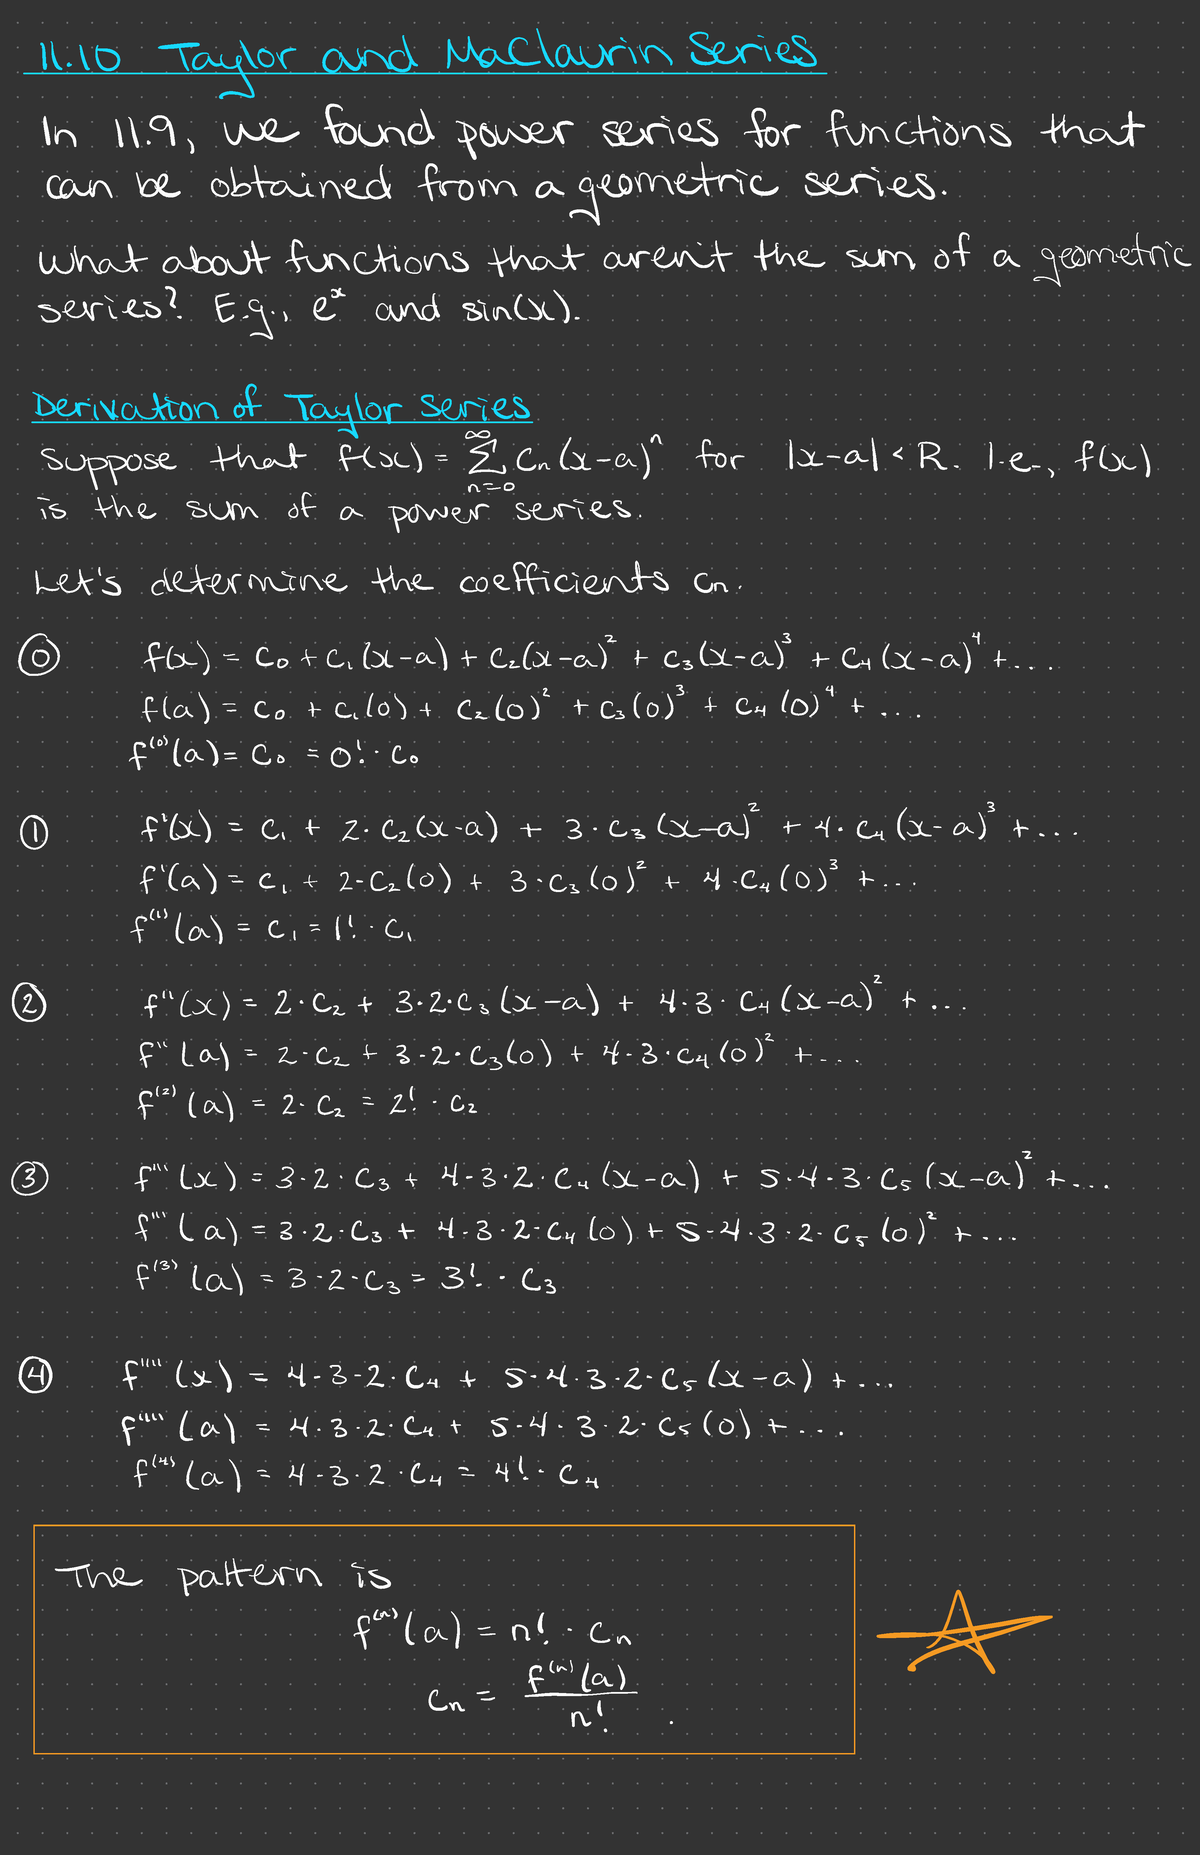 11.10 Taylor and MaClaurin Series
In 11.9, we found power series for functions that
can be obtained from a geometric series.
What about functions that aren't the sum of a geometric
series? E.g., eˣ and sin(x).
Derivation of Taylor Series
Suppose that f(x) = ∑_{n=0}^{∞} Cₙ(x-a)ⁿ for |x-a| < R. I.e., f(x)
is the sum of a power series.
Let's determine the coefficients cₙ.
⓪ f(x) = C₀ + C₁(x-a) + C₂(x-a)² + C₃(x-a)³ + C₄(x-a)⁴ + ...
f(a) = C₀ + C₁(0) + C₂(0)² + C₃(0)³ + C₄(0)⁴ + ...
f⁽⁰⁾(a) = C₀ = 0! · C₀
① f'(x) = C₁ + 2·C₂(x-a) + 3·C₃(x-a)² + 4·C₄(x-a)³ + ...
f'(a) = C₁ + 2·C₂(0) + 3·C₃(0)² + 4·C₄(0)³ + ...
f⁽¹⁾(a) = C₁ = 1! · C₁
② f''(x) = 2·C₂ + 3·2·C₃(x-a) + 4·3·C₄(x-a)² + ...
f''(a) = 2·C₂ + 3·2·C₃(0) + 4·3·C₄(0)² + ...
f⁽²⁾(a) = 2·C₂ = 2! · C₂
③ f'''(x) = 3·2·C₃ + 4·3·2·C₄(x-a) + 5·4·3·C₅(x-a)² + ...
f'''(a) = 3·2·C₃ + 4·3·2·C₄(0) + 5·4·3·2·C₅(0)² + ...
f⁽³⁾(a) = 3·2·C₃ = 3! · C₃
④ f''''(x) = 4·3·2·C₄ + 5·4·3·2·C₅(x-a) + ...
f''''(a) = 4·3·2·C₄ + 5·4·3·2·C₅(0) + ...
f⁽⁴⁾(a) = 4·3·2·C₄ = 4! · C₄
The pattern is
f⁽ⁿ⁾(a) = n! · Cₙ
Cₙ = f⁽ⁿ⁾(a) / n! .